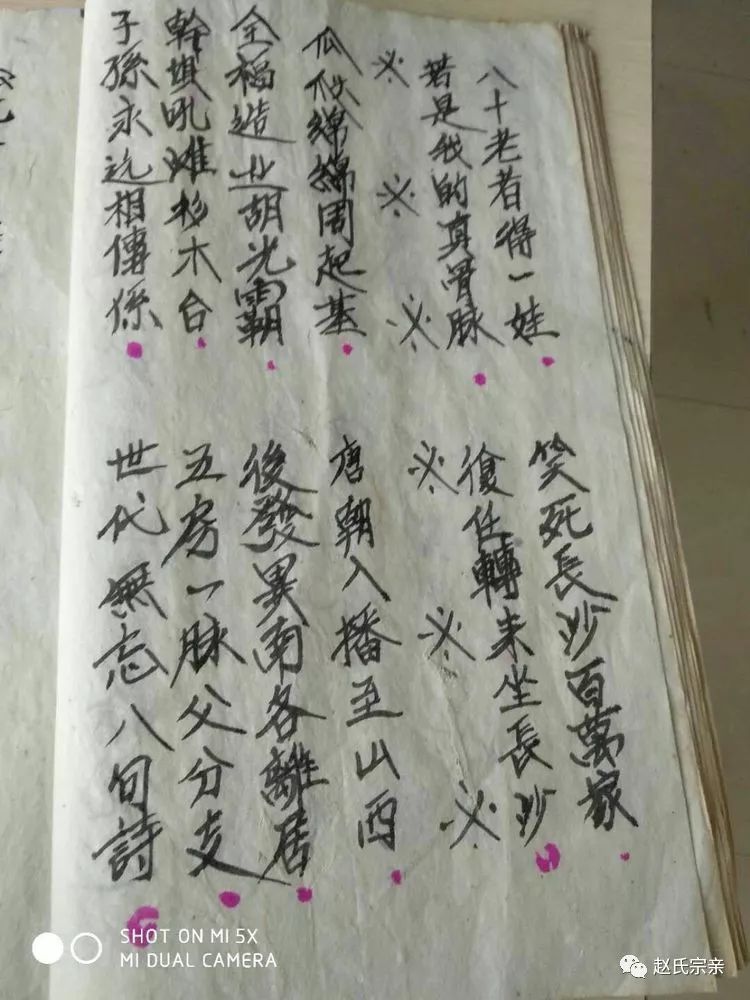 八十老者得一娃
笑死長沙百萬家
若是我的真骨脉
復任轉来坐長沙
瓜瓞綿綿周起基
唐朝入播至山西
全福造业胡光霸
後發異南各離居
幹埧吼灘杉木台
五房一脉父分支
子孫永远相傳係
世代無忘八句詩
SHOT ON MI 5X
MI DUAL CAMERA
赵氏宗亲